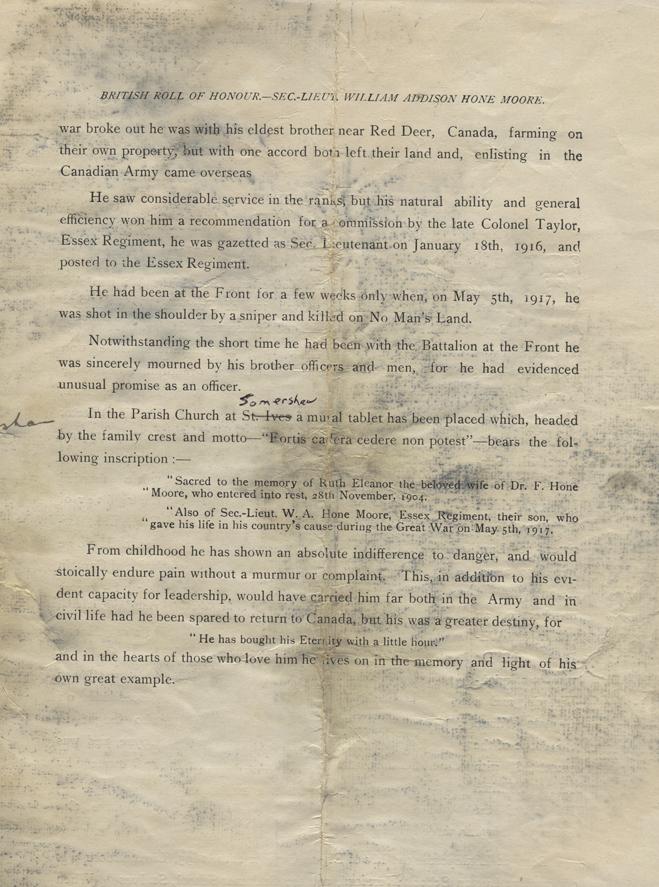 BRITISH ROLL OF HONOUR.—SEC.-LIEUT. WILLIAM ADDISON HONE MOORE.
war broke out he was with his eldest brother near Red Deer, Canada, farming on
their own property, but with one accord both left their land and, enlisting in the
Canadian Army came overseas
He saw considerable service in the ranks, but his natural ability and general
efficiency won him a recommendation for a commission by the late Colonel Taylor,
Essex Regiment, he was gazetted as Sec. Lieutenant on January 18th, 1916, and
posted to the Essex Regiment.
He had been at the Front for a few weeks only when, on May 5th, 1917, he
was shot in the shoulder by a sniper and killed on No Man's Land.
Notwithstanding the short time he had been with the Battalion at the Front he
was sincerely mourned by his brother officers and men, for he had evidenced
unusual promise as an officer.
Somersham
In the Parish Church at St. Ives a mural tablet has been placed which, headed
by the family crest and motto—"Fortis cadera cedere non potest"—bears the fol-
lowing inscription :—
"Sacred to the memory of Ruth Eleanor the beloved wife of Dr. F. Hone
"Moore, who entered into rest, 28th November, 1904.
"Also of Sec.-Lieut. W. A. Hone Moore, Essex Regiment, their son, who
"gave his life in his country's cause during the Great War on May 5th, 1917.
From childhood he has shown an absolute indifference to danger, and would
stoically endure pain without a murmur or complaint. This, in addition to his evi-
dent capacity for leadership, would have carried him far both in the Army and in
civil life had he been spared to return to Canada, but his was a greater destiny, for
"He has bought his Eternity with a little hour."
and in the hearts of those who love him he lives on in the memory and light of his
own great example.